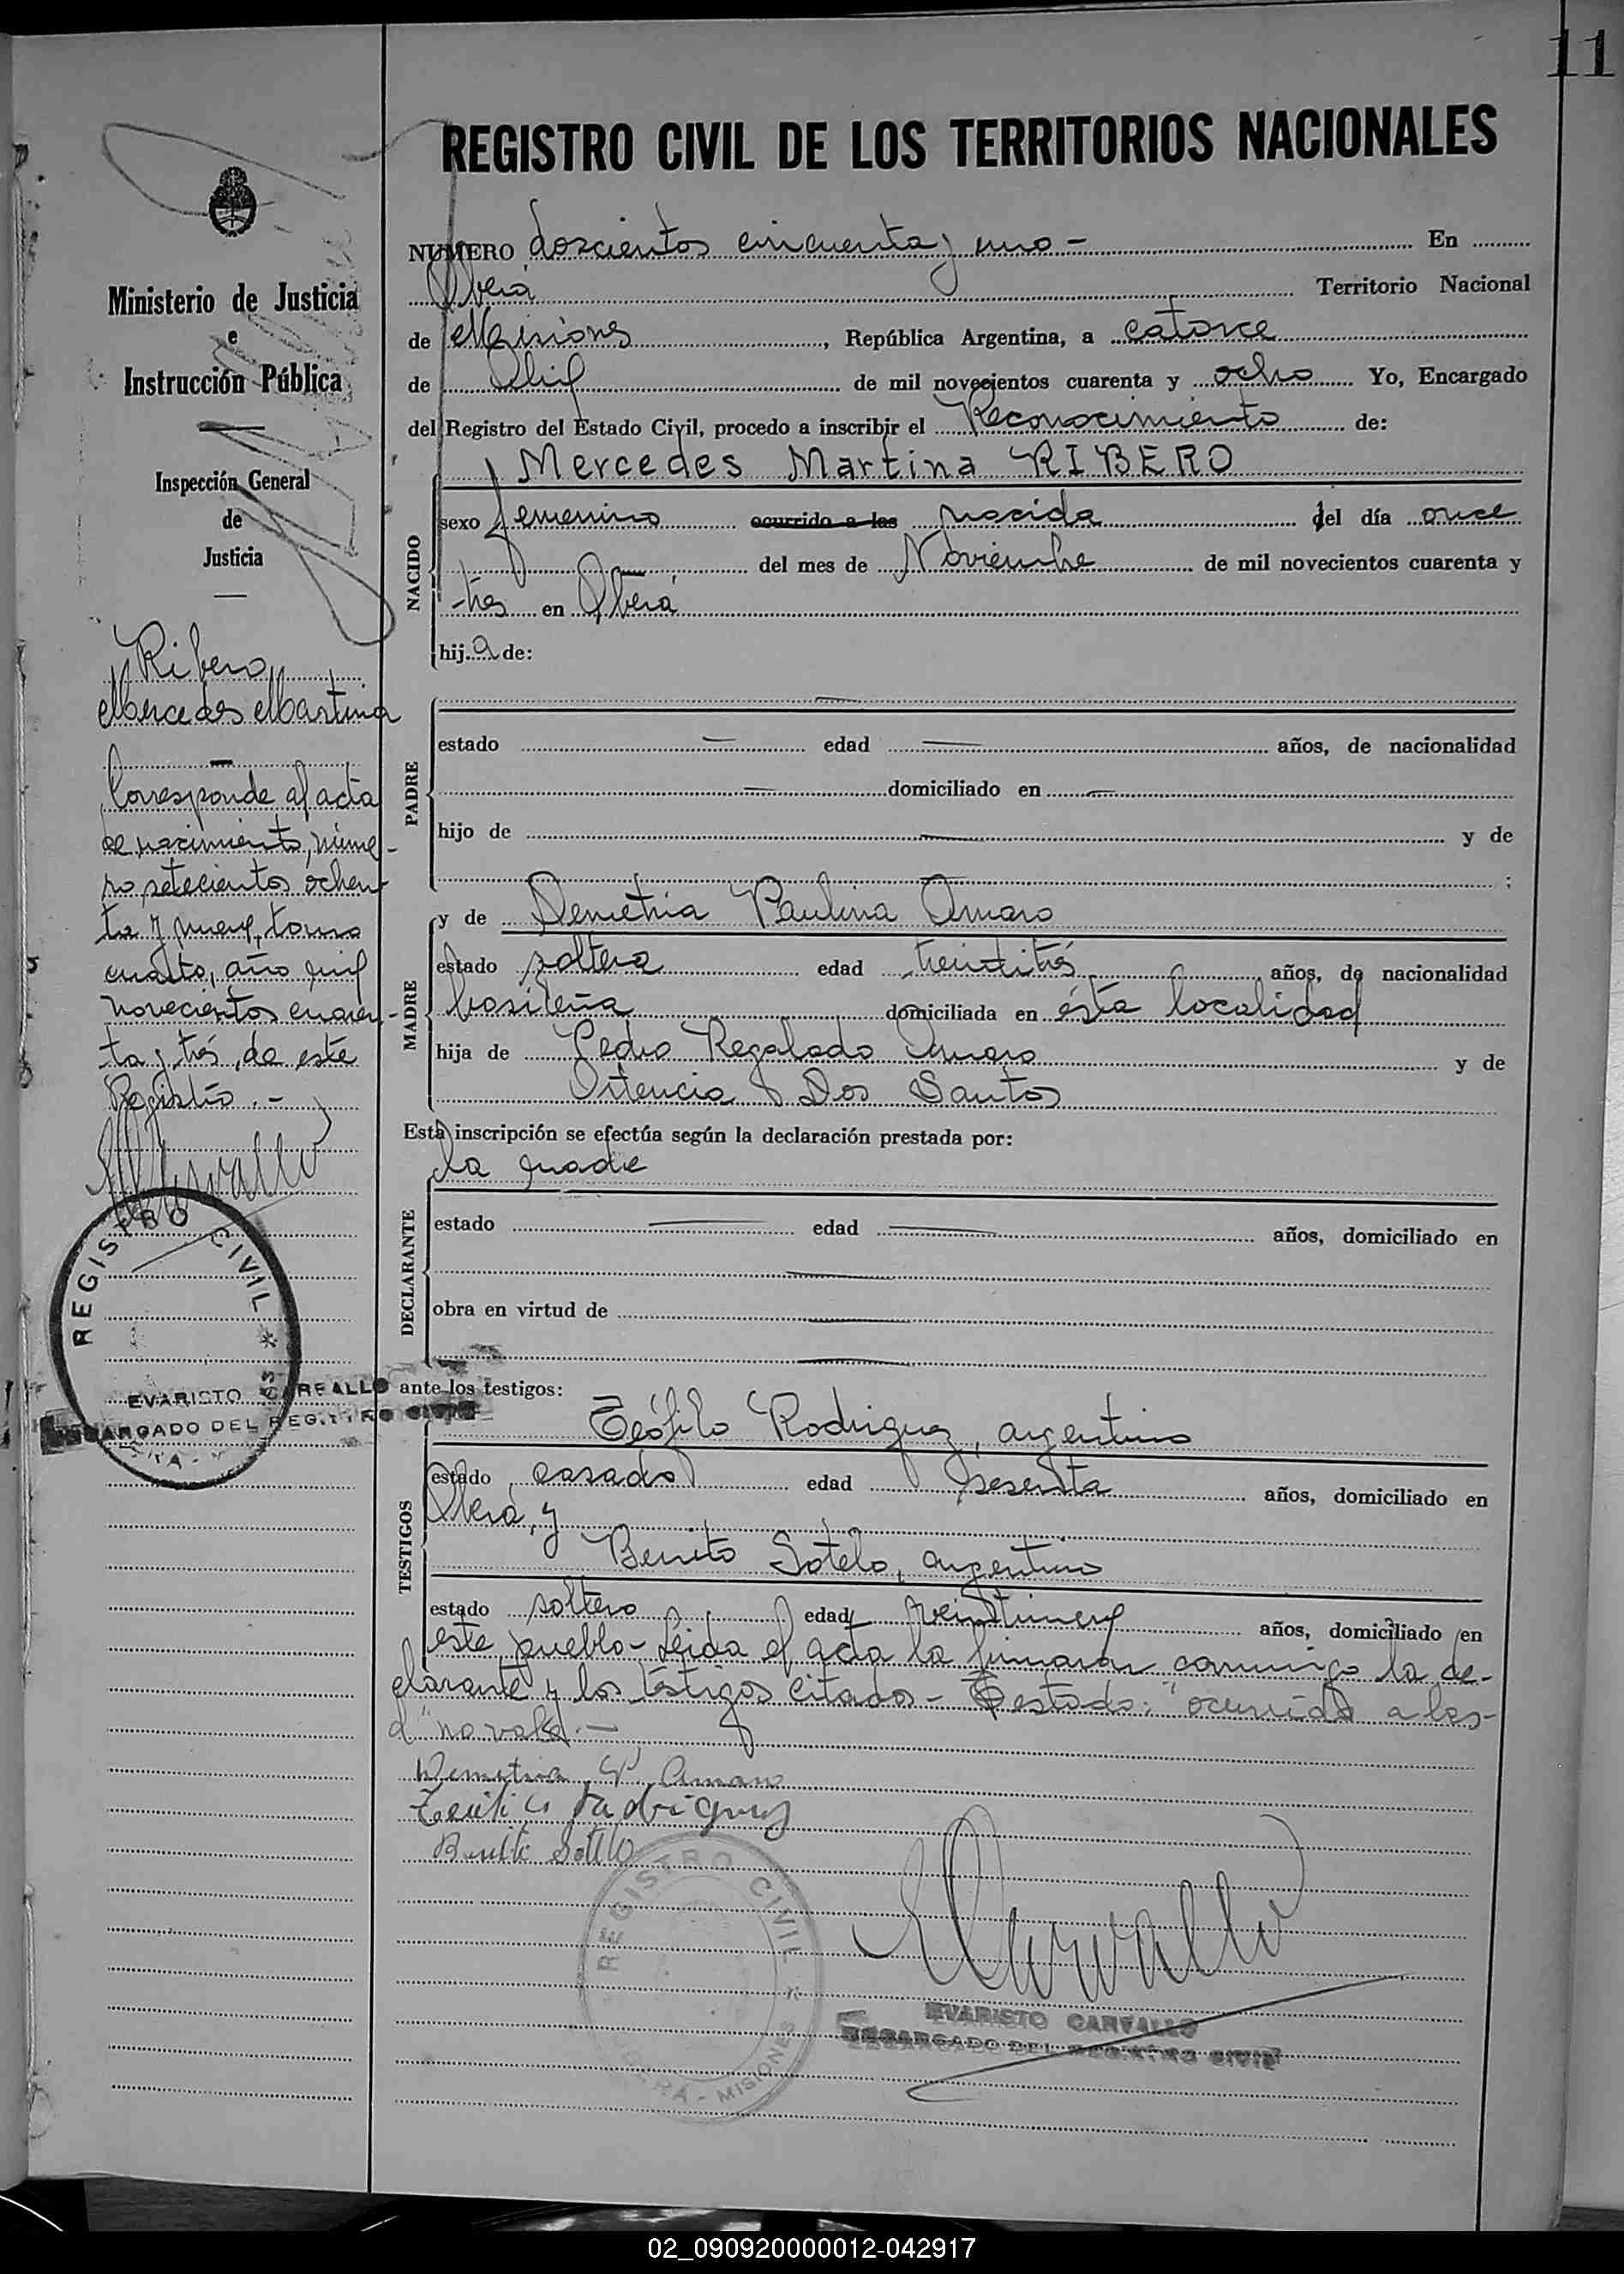 11
REGISTRO CIVIL DE LOS TERRITORIOS NACIONALES
Ministerio de Justicia
e
Instrucción Pública
Inspección General
de
Justicia
Ribero
Mercedes Martina
Corresponde al acta
de nacimiento, núme-
ro setecientos ochen-
ta y nueve, tomo
cuarto, año mil
novecientos cuaren-
ta y trés, de este
Registro.-
REGISTRO CIVIL *
EVARISTO CARVALLO
ENCARGADO DEL REGISTRO CIVIL
NUMERO doscientos cincuenta y uno - En
Oberá Territorio Nacional
de Misiones, República Argentina, a catorce
de Abril de mil novecientos cuarenta y ocho Yo, Encargado
del Registro del Estado Civil, procedo a inscribir el Reconocimiento de:
Mercedes Martina RIBERO
NACIDO
sexo femenino ocurrido a las nacida del día once
del mes de Noviembre de mil novecientos cuarenta y
trés en Oberá
hija de:
PADRE
estado edad años, de nacionalidad
domiciliado en
hijo de y de
;
MADRE
y de Demetria Paulina Amaro
estado soltera edad treintitrés años, de nacionalidad
brasileña domiciliada en ésta localidad
hija de Pedro Regalado Amaro y de
Ortencia Dos Santos
Esta inscripción se efectúa según la declaración prestada por:
la madre
DECLARANTE
estado edad años, domiciliado en
obra en virtud de
ante los testigos:
TESTIGOS
Teófilo Rodriguez, argentino
estado casado edad sesenta años, domiciliado en
Oberá, y
Benito Sotelo, argentino
estado soltero edad veintinueve años, domiciliado en
este pueblo- Leida el acta la firmaron conmigo la de-
clarante y los testigos citados - Testado: "ocurrido a las-
d" no vale.-
Demetria P. Amaro
Teofilo Rodriguez
Benito Sotelo
REGISTRO CIVIL *
OBERÁ - MISIONES
ECarvallo
EVARISTO CARVALLO
ENCARGADO DEL REGISTRO CIVIL
02_090920000012-042917